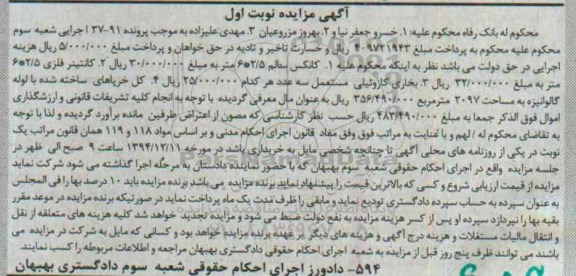 آگهی مزایده نوبت اول
محکوم له بانک رفاه محکوم علیه: ۱. خسرو جعفر نیا و ۲. بهروز مزروعیان ۳. مهدی علیزاده به موجب پرونده ۹۱-۳۷ اجرایی شعبه سوم
محکوم علیه محکوم به پرداخت مبلغ ۴۰۹۷۲۱۹۴۳ ریال و خسارت تاخیر و تادیه در حق خواهان و پرداخت مبلغ ۵/۰۰۰/۰۰۰ ریال هزینه
اجرایی در حق دولت می باشد نظر به اینکه محکوم علیه ۱. کانکس سالم ۲٥*۶ متر به مبلغ ۳۰/۰۰۰/۰۰۰ ریال ۲. کانتینر فلزی ۲٥*۶
متر به مبلغ ۳۲/۰۰۰/۰۰۰ ریال ۳. بخاری گازوئیلی مستعمل سه عدد هر کدام ۲۵/۰۰۰/۰۰۰ ریال ۴. کل خرپاهای ساخته شده با لوله
گالوانیزه به مساحت ۲۰۹۷ مترمربع ۳۵۶/۴۹۰/۰۰۰ ریال به عنوان مال معرفی گردیده با توجه به انجام کلیه تشریفات قانونی و ارزشگذاری
اموال فوق الذکر جمعا به مبلغ ۴۸۳/۴۹۰/۰۰۰ ریال حسب نظر کارشناسی که مصون از اعتراض طرفین مانده برآورد گردیده و لذا با توجه
به تقاضای محکوم له / لهم و با عنایت به مراتب فوق وفق مفاد قانون اجرای احکام مدنی و بر اساس مواد ۱۱۸ و ۱۱۹ همان قانون مراتب یک
نوبت در یکی از روزنامه های محلی آگهی تا چنانچه شخصی مایل به خریداری باشد در مورخه ۱۳۹۴/۱۲/۱۱ ساعت ۹ صبح الی ظهر در
جلسه مزایده واقع در اجرای احکام حقوقی شعبه سوم بهبهان که با حضور نماینده دادستان به مرحله اجرا گذاشته می شود شرکت نماید
مزایده از قیمت ارزیابی شروع و کسی که بالاترین قیمت را پیشنهاد نماید برنده مزایده می باشد برنده مزایده باید ۱۰ درصد بها را فی المجلس
به عنوان سپرده به حساب سپرده دادگستری تودیع نماید و مابقی را ظرف مدت یک ماه پرداخت نماید در صورتیکه برنده مزایده در موعد مقرر
بقیه بها را نپردازد سپرده او پس از کسر هزینه مزایده به نفع دولت ضبط می شود و مزایده تجدید خواهد شد کلیه هزینه های متعلقه از نقل
و انتقال مالیات مستغلات و هزینه درج آگهی و هزینه های دیگر بر عهده برنده مزایده خواهد بود و کسانی که مایل به شرکت در مزایده می
باشند می توانند ظرف پنج روز قبل از مزایده به شعبه اجرای احکام حقوقی دادگستری بهبهان مراجعه و اطلاعات مربوطه را کسب نمایند.
۵۹۴- دادورز اجرای احکام حقوقی شعبه سوم دادگستری بهبهان